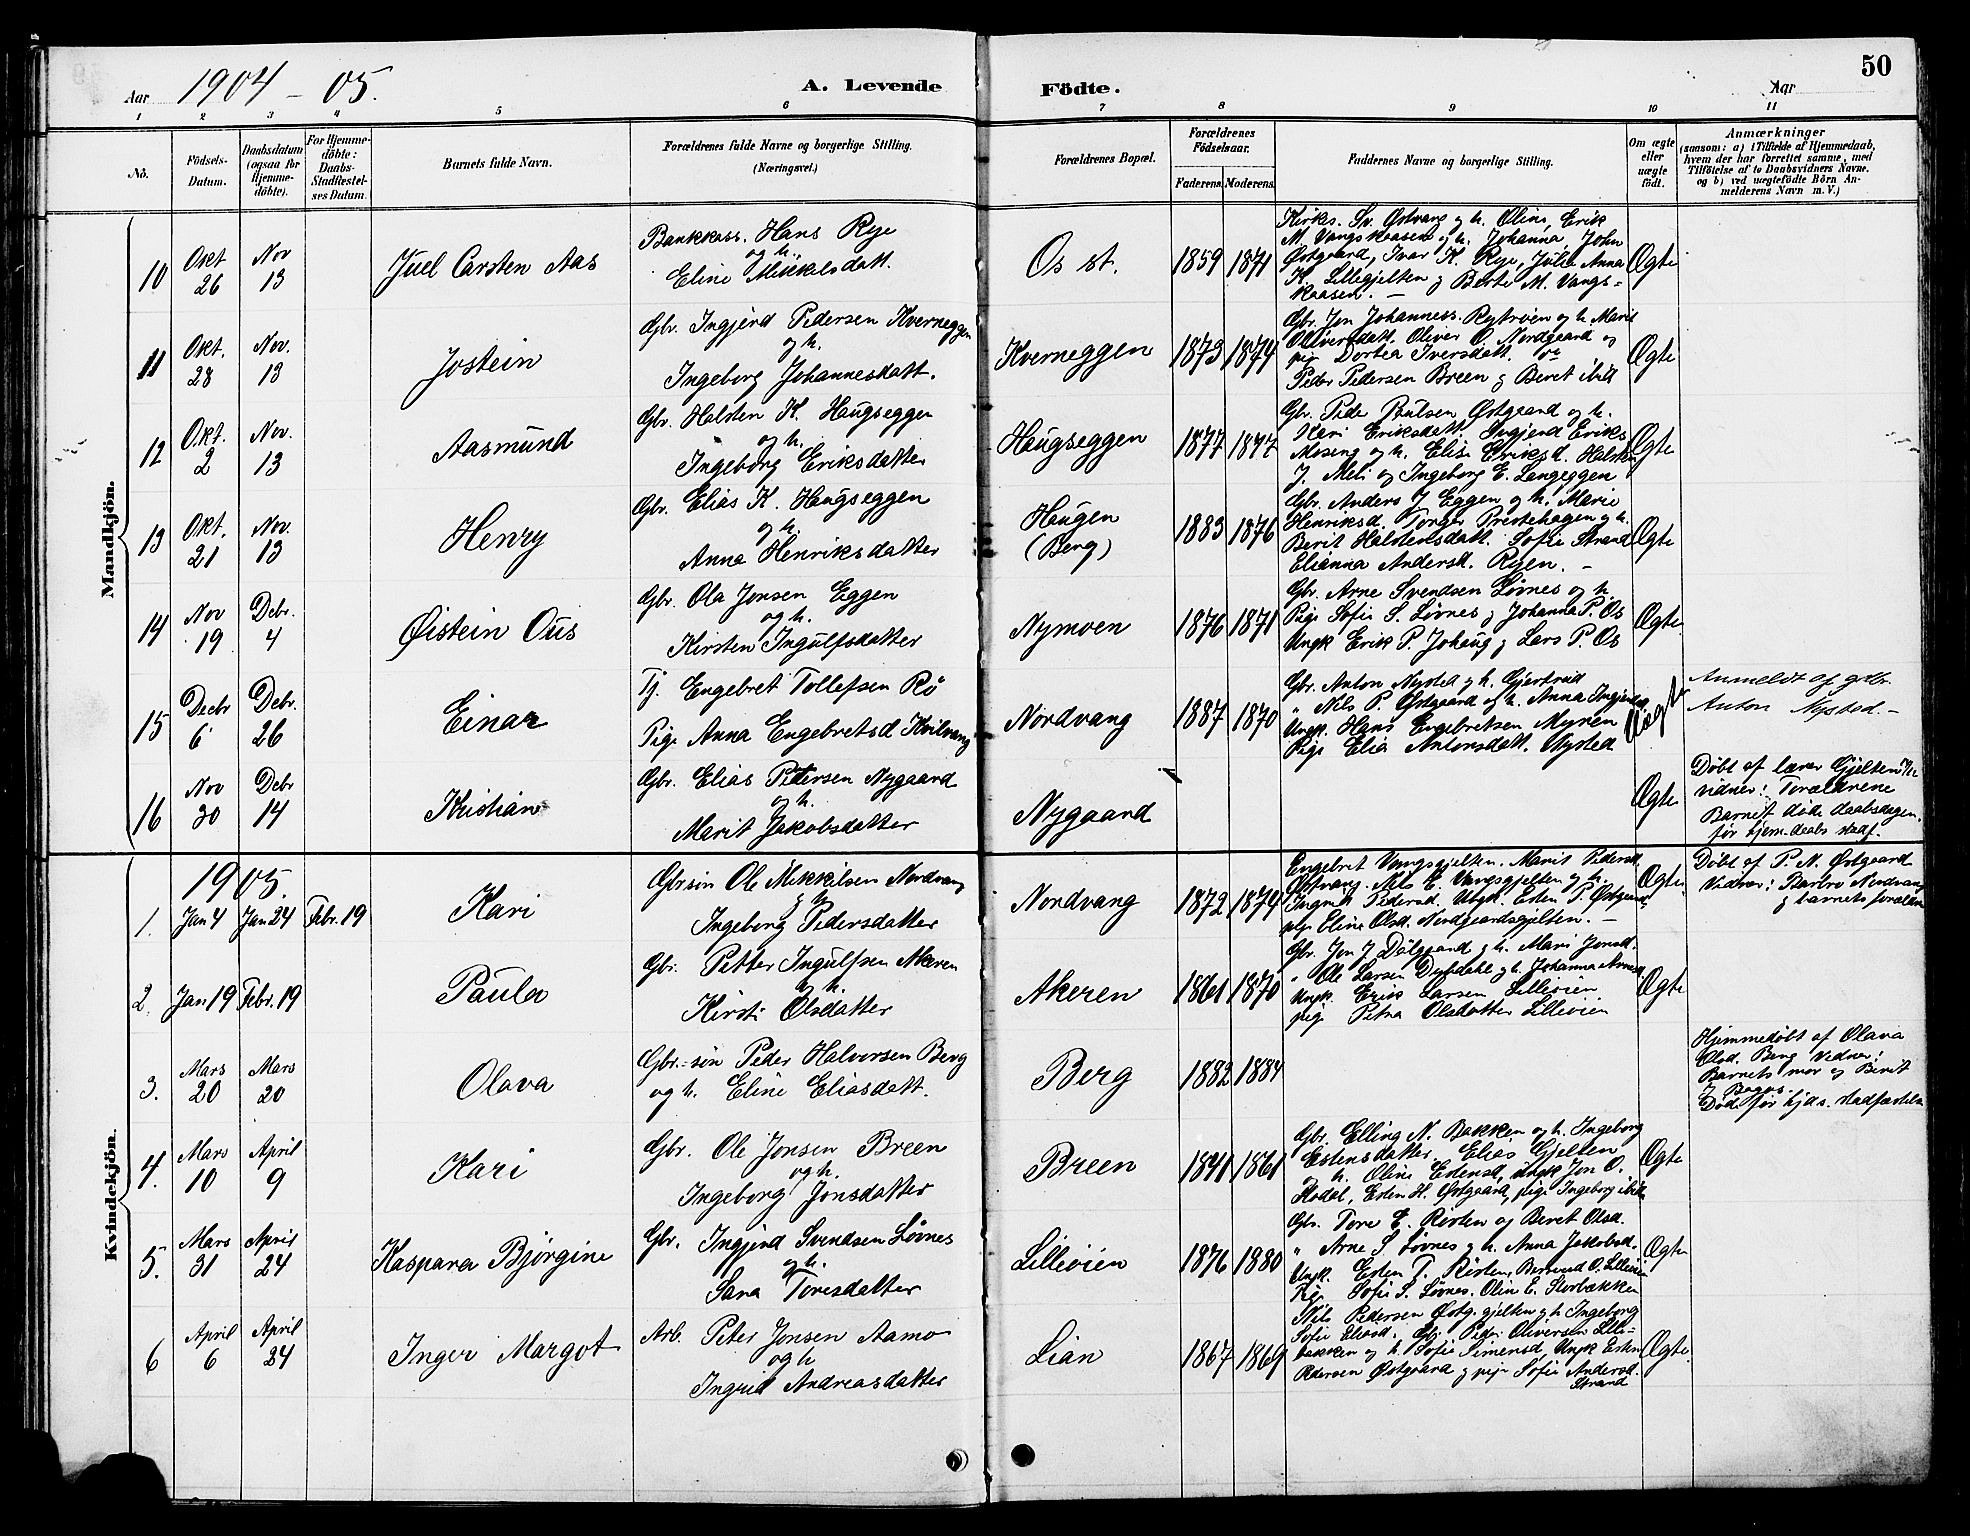 50
Aar 1904 - 05.
A. Levende Födte.
Aar
1 2 3 4 5 6 7 8 9 10 11
No.
Födsels-Datum.
Daabsdatum (ogsaa for Hjemme-döbte).
For Hjemme-döbte: Daabs-Stadfæstel-ses Datum.
Barnets fulde Navn.
Forældrenes fulde Navne og borgerlige Stilling. (Næringsvei.)
Forældrenes Bopæl.
Forældrenes Födselsaar.
Faderens. Moderens.
Faddernes Navne og borgerlige Stilling.
Om ægte eller uægte födt.
Anmærkninger
(saasom: a) i Tilfælde af Hjemmedaab, hvem der har forrettet samme, med Tilföielse af to Daabsvidners Navne. og b) ved uægtefödte Börn An-melderens Navn m. V.)
Mandkjön.
10 Okt 26 Nov 13 Juel Carsten Aas
Bankkass. Hans Rye
og h.
Eline Mikkelsdatt.
Os st. 1859 1871
Kirks. Sv. Østvang og h. Oline, Erik
M. Vangskaasen og h. Johanna, John
Østgaard, Ivar K. Rye, Julie Anna
K. Lillegjelten og Berte M. Vangs=
kaasen. —
Ægte
11 Okt. 28 Nov. 13 Jostein
Gbr. Ingjerd Pedersen Kverneggen
og h.
Ingeborg Johannesdatt.
Kverneggen 1873 1874
Gbr. Jon Johanness. Rystrøen og h. Marit
Oliversdatt. Oliver O. Nordgaard og
pige Dortea Iversdatt.
Peder Pedersen Breen og Beret ibid
Ægte
12 Okt. 2 Nov. 13 Aasmund
Gbr. Halsten K. Haugseggen
og h.
Ingeborg Eriksdatter
Haugseggen 1877 1877
Gbr. Peder Paulsen Østgaard og h.
Kari Eriksdatt. Ingjerd Eriks
Moseng og h. Elise Eriksd. Halsten
J. Meli og Ingeborg E. Langeggen
Ægte
13 Okt. 21 Nov. 13 Henry
Gbr. Elias K. Haugseggen
og h.
Anne Henriksdatter
Haugen
(Berg)
1883 1876
Gbr. Anders J Eggen og h. Marie
Henriksd. Torger Prestehagen og h.
Berit Halstensdatt. Sofie Strand
Elianna Andersd. Ryen. —
Ægte
14 Nov 19 Debr. 4 Øistein Ous
Gbr. Ola Jonsen Eggen
og h.
Kirsten Ingulfsdatter
Nymoen 1876 1871
Gbr. Arne Svendsen Løvnes og h.
Pige Sofie S. Løvnes og Johanna P. Os
Ungk Erik P. Johaug og Lars P. Os
Ægte
15 Decbr 6 Debr. 26 Einar
Tj. Engebret Tollefsen Rø
Pige Anna Engebretsd Kvilvang
Nordvang 1887 1870
Gbr. Anton Nysted og h. Gjertrud
" Nils P. Østgaard og h. Anna Ingjerdsd.
Ungk. Hans Engebretsen Myren
Pige Elia Antonsdatt. Nysted
Uægte
Anmeldt af gdbr.
Anton Nysted. —
16 Nov 30 Debr 14 Kristian
Gbr. Elias Pedersen Nygaard
og h.
Marit Jakobsdatter
Nygaard
Ægte
Døbt af lærer Gjelten
vidner: Forældrene
Barnet døde daabsdagen.
før hjem. daabs stadf.
Kvindekjön.
1905.
1. Jan 4 Jan 24 Febr. 19 Kari
Gbr. søn Ole Mikkelsen Nordvang
og h.
Ingeborg Pedersdatter
Nordvang 1872 1874
Engebret Vangsgjelten. Marit Pedersd.
Østvang. Nils E. Vangsgjelten og h.
Ingrid Pedersd. Ungk. Esten P. Østgaard
pige Eline Olsd. Nordgaardsgjelten. —
Ægte
Døbt af P. N. Østgaard
Vidner: Barbro Nordvang
og barnets foræld.
2. Jan 19 Febr. 19 Paula
Gbr. Petter Ingulfsen Akeren
og h.
Kirsti Olsdatter
Akeren 1861 1870
Gbr. Jon J Dalgaard og h. Mari Jonsd.
" Ole Larsen Dybdahl og h. Johanna Arned.
Ungk. Erik Larsen Lilleøien
pige Petra Olsdatter Lilleøien
Ægte
3. Mars 20 Mars 20 Olava
Gbr.=søn Peder Halvorsen Berg
og h. Eline Eliasdatt.
Berg 1882 1884
Hjemmedøbt af Olava
Olsd. Berg Vidner:
Barnets mor og Beret
J Bakos.
Døde før hjds. stadfæstelse
4. Mars 10 April 9 Kari
Gbr. Ole Jonsen Breen
og h.
Ingeborg Jonsdatter
Breen 1841 1861
Gbr. Elling N. Bakken og h. Ingeborg
Estensdatter, Elias Gjelten
og h. Oline Estensd, ungk Jon O.
Hodal, Esten H. Østgaard, pige Ingeborg ibid
Ægte
5. Mars 31 April 24 Kaspara Bjørgine
Gbr. Ingjerd Svendsen Løvnes
og h.
Sara Toresdatter
Lilleøien 1876 1880
Gbr. Tore E. Røsten og Beret Olsd.
" Arne S Løvnes og h. Anna Jakobsd.
Ungk. Esten T. Røsten, Bersvend O. Lilleøien
Pige Sofie S. Løvnes. Olin E. Storbækken
Ægte
6 April 6 April 24 Inger Margot
Arb. Peter Jonsen Aamo
og h
Ingrid Andreasdatter
Lian 1867 1869
Nils Pedersen Østg. gjelten og h Ingeborg
Sofie Eliasd. Gbr. Peder Oliversen Lille=
bakken og h Sofie Simensd, Ungk Esten
Pedersen Østgaard og pige Sofie Andersd.
Strand
Ægte